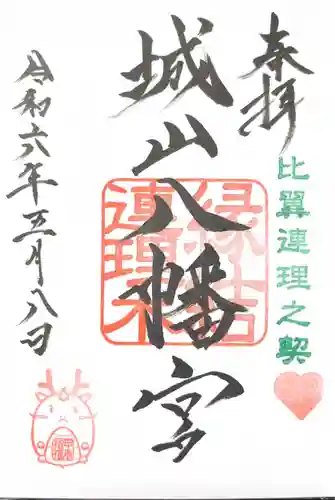 奉拝
比翼連理之契
城山八幡宮
縁結
連理木
令和六年五月八日